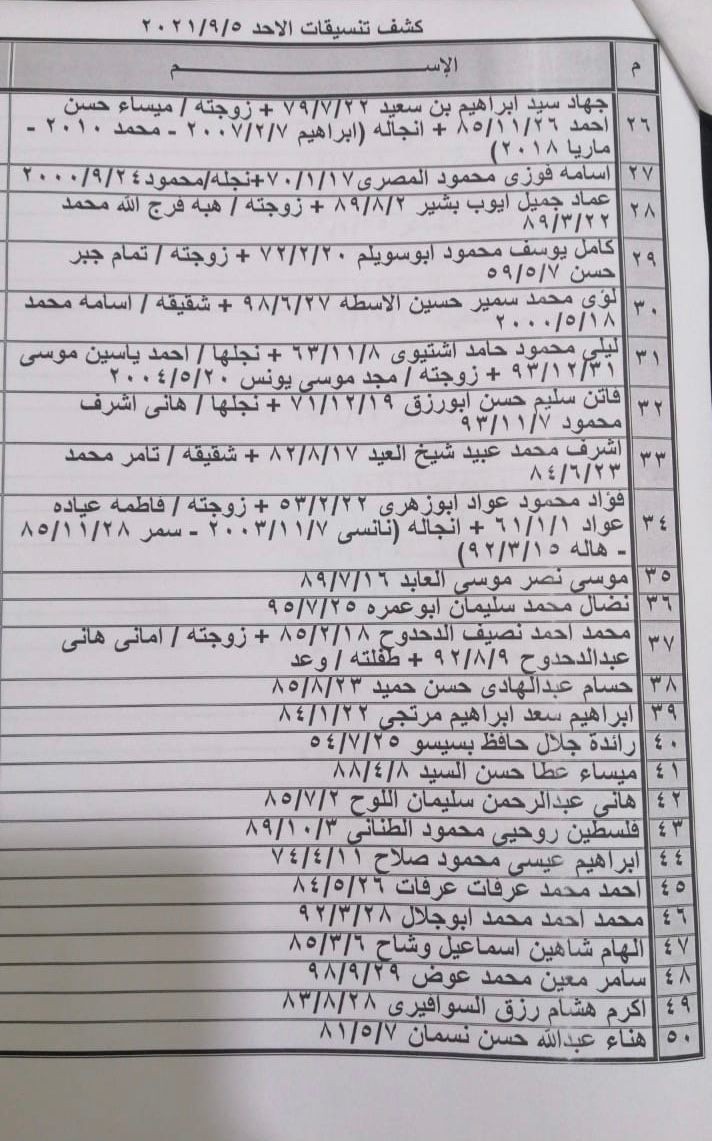 كشف تنسيقات الاحد ٢٠٢١/٩/٥
م الإســـــــــــم
٢٦ جهاد سيد ابراهيم بن سعيد ٧٩/٧/٢٢ + زوجته / ميساء حسن
احمد ٨٥/١١/٢٦ + انجاله (ابراهيم ٢٠٠٧/٢/٧ - محمد ٢٠١٠ -
ماريا ٢٠١٨)
٢٧ اسامه فوزى محمود المصرى ٧٠/١/١٧+نجله/محمود٢٠٠٠/٩/٢٤
٢٨ عماد جميل ايوب بشير ٨٩/٨/٢ + زوجته / هبه فرج الله محمد
٨٩/٣/٢٢
٢٩ كامل يوسف محمود ابوسويلم ٧٢/٢/٢٠ + زوجته / تمام جبر
حسن ٥٩/٥/٧
٣٠ لؤى محمد سمير حسين الاسطه ٩٨/٦/٢٧ + شقيقه / اسامه محمد
٢٠٠٠/٥/١٨
٣١ ليلي محمود حامد اشتيوى ٦٣/١١/٨ + نجلها / احمد ياسين موسى
٩٣/١٢/٣١ + زوجته / مجد موسي يونس ٢٠٠٤/٥/٢٠
٣٢ فاتن سليم حسن ابورزق ٧١/١٢/١٩ + نجلها / هانى اشرف
محمود ٩٣/١١/٧
٣٣ اشرف محمد عبيد شيخ العيد ٨٢/٨/١٧ + شقيقه / تامر محمد
٨٤/٦/٢٣
٣٤ فؤاد محمود عواد ابوزهرى ٥٣/٢/٢٢ + زوجته / فاطمه عياده
عواد ٦١/١/١ + انجاله (نانسى ٢٠٠٣/١١/٧ - سمر ٨٥/١١/٢٨
- هاله ٩٢/٣/١٥)
٣٥ موسي نصر موسي العابد ٨٩/٧/١٦
٣٦ نضال محمد سليمان ابوعمره ٩٥/٧/٢٥
٣٧ محمد احمد نصيف الدحدوح ٨٥/٢/١٨ + زوجته / امانى هانى
عبدالدحدوح ٩٢/٨/٩ + طفلته / وعد
٣٨ حسام عبدالهادى حسن حميد ٨٥/٨/٢٣
٣٩ ابراهيم سعد ابراهيم مرتجى ٨٤/١/٢٢
٤٠ رائدة جلال حافظ بسيسو ٥٤/٧/٢٥
٤١ ميساء عطا حسن السيد ٨٨/٤/٨
٤٢ هانى عبدالرحمن سليمان اللوح ٨٥/٧/٢
٤٣ فلسطين روحيى محمود الطنانى ٨٩/١٠/٣
٤٤ ابراهيم عيسى محمود صلاح ٧٤/٤/١١
٤٥ احمد محمد عرفات عرفات ٨٤/٥/٢٦
٤٦ محمد احمد محمد ابوجلال ٩٢/٣/٢٨
٤٧ الهام شاهين اسماعيل وشاح ٨٥/٣/٦
٤٨ سامر معين محمد عوض ٩٨/٩/٢٩
٤٩ اكرم هشام رزق السوافيرى ٨٣/٨/٢٨
٥٠ هناء عبدالله حسن نسمان ٨١/٥/٧